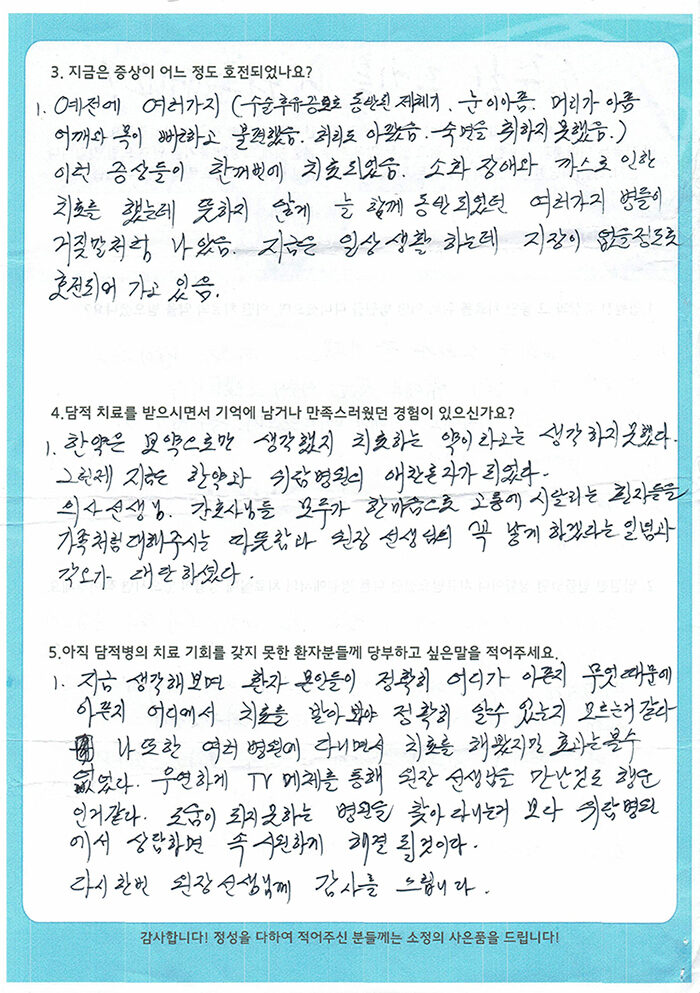 3. 지금은 증상이 어느 정도 호전되었나요?
1. 예전에 여러가지 (수술후유증으로 동반된 눈이아픔. 머리가 아픔
어깨와 목이 뻐근하고 불편했음. 허리도 아팠음. 숙면을 취하지 못했음.)
이런 증상들이 한꺼번에 치료되었음. 소화 장애와 까스로 인한
치료를 했는데 뜻하지 않게 늘 함께 동반되었던 여러가지 병들이
거짓말처럼 나았음. 지금은 일상생활 하는데 지장이 없을정도로
호전되어 가고 있음.
4.담적 치료를 받으시면서 기억에 남거나 만족스러웠던 경험이 있으신가요?
1. 한약은 보약으로만 생각했지 치료하는 약이라고는 생각하지못했다.
그런제 지금은 한약과 위담병원의 애찬론자가 되었다.
의사선생님. 간호사님들 모두가 한마음으로 고통에 시달리는 환자들을
가족처럼 대해주시는 따뜻함과 원장 선생님의 꼭 낳게 하겠다는 일념과
각오가 대단하셨다
5.아직 담적병의 치료 기회를 갖지 못한 환자분들께 당부하고 싶은말을 적어주세요.
1. 지금 생각해보면 환자 본인들이 정확히 어디가 아픈지 무엇때문에
아픈지 어디에서 치료를 받아 봐야 정확히 알수 있는지 모르는거 같다
나 또한 여러 병원에 다니면서 치료를 해봤지만 효과는 볼수
없었다. 우연하게 TV 매체를 통해 원장 선생님을 만난것도 행운
인거같다. 도움이 되지못하는 병원을 찾아 다니는거 보다 위담병원
에서 상담하면 속 시원하게 해결 될것이다.
다시한번 원장선생님께 감사를 드립니다.
감사합니다! 정성을 다하여 적어주신 분들께는 소정의 사은품을 드립니다!